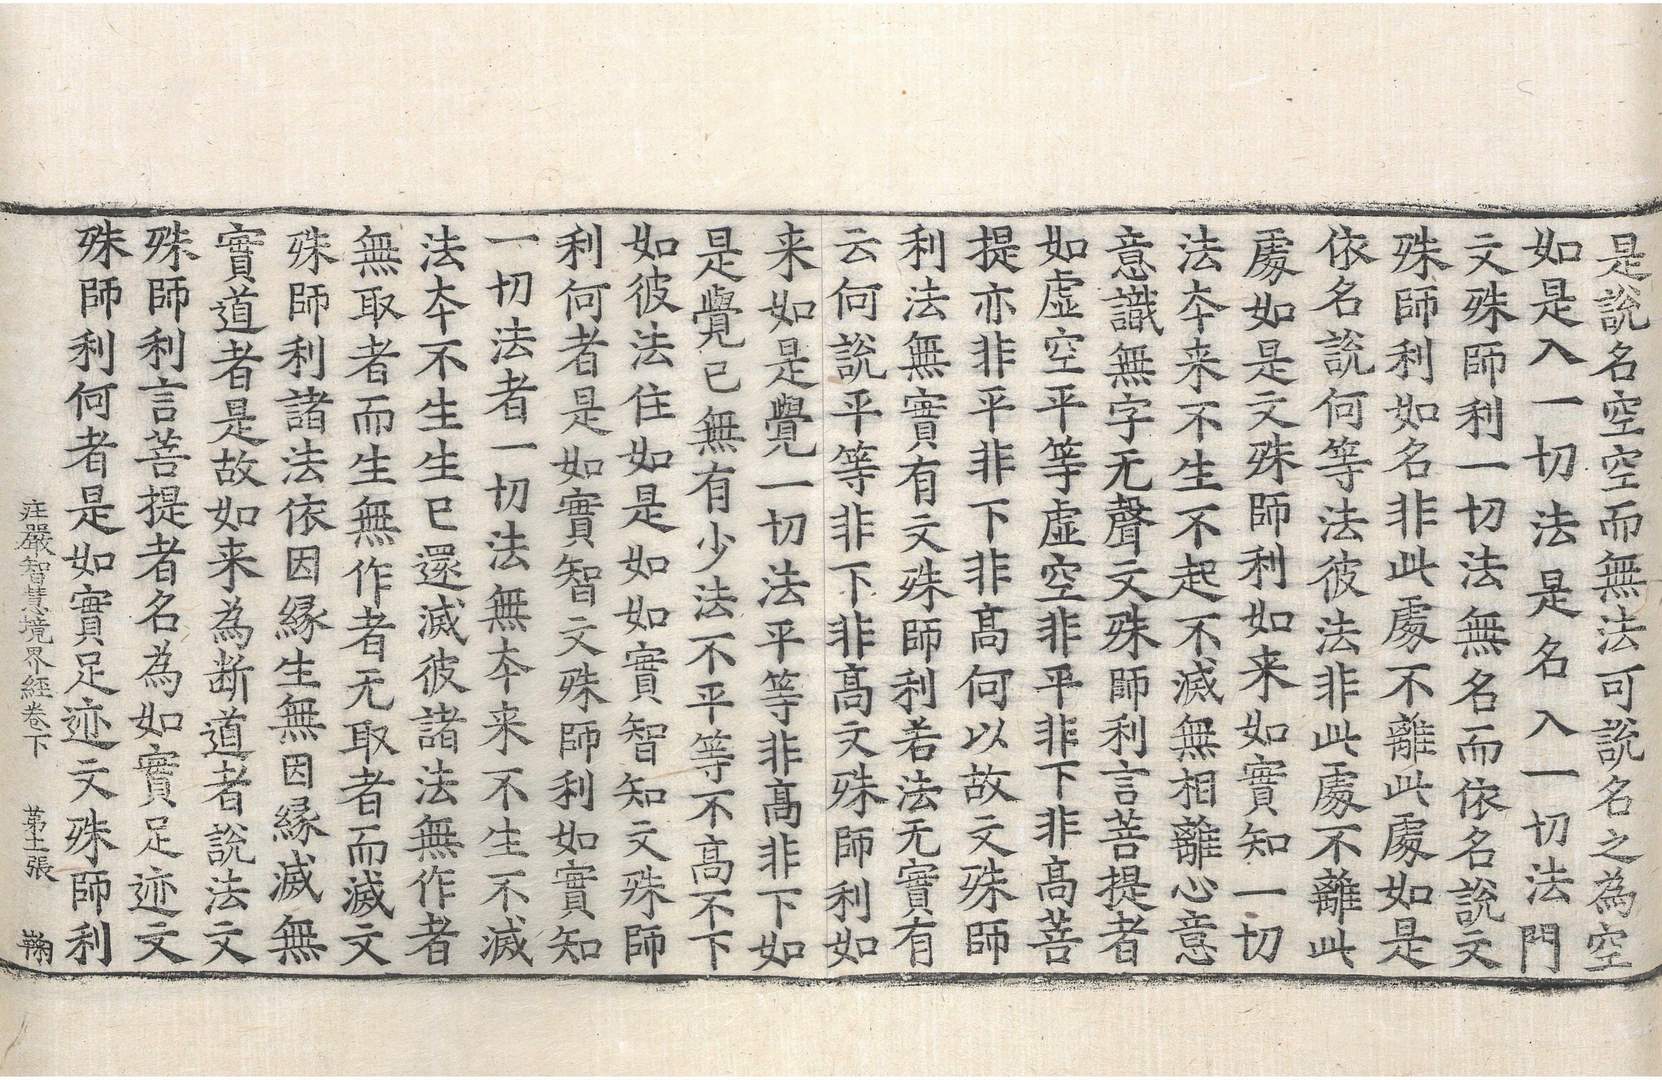 是說名空空而無法可說名之為空
如是入一切法是名入一切法門
文殊師利一切法無名而依名說文
殊師利如名非此處不離此處如是
依名說何等法彼法非此處不離此
處如是文殊師利如来如實知一切
法夲来不生不起不滅無相離心意
意識無字无聲文殊師利言菩提者
如虛空平等虛空非平非下非高菩
提亦非平非下非高何以故文殊師
利法無實有文殊師利若法无實有
云何說平等非下非高文殊師利如
来如是覺一切法平等非高非下如
是覺已無有少法不平等不高不下
如彼法住如是如如實智知文殊師
利何者是如實智文殊師利如實知
一切法者一切法無夲来不生不滅
法夲不生生已還滅彼諸法無作者
無取者而生無作者无取者而滅文
殊師利諸法依因緣生無因緣滅無
實道者是故如来為断道者說法文
殊師利言菩提者名為如實足迹文
殊師利何者是如實足迹文殊師利
庄嚴智慧境界經卷下 苐十一張 鞠